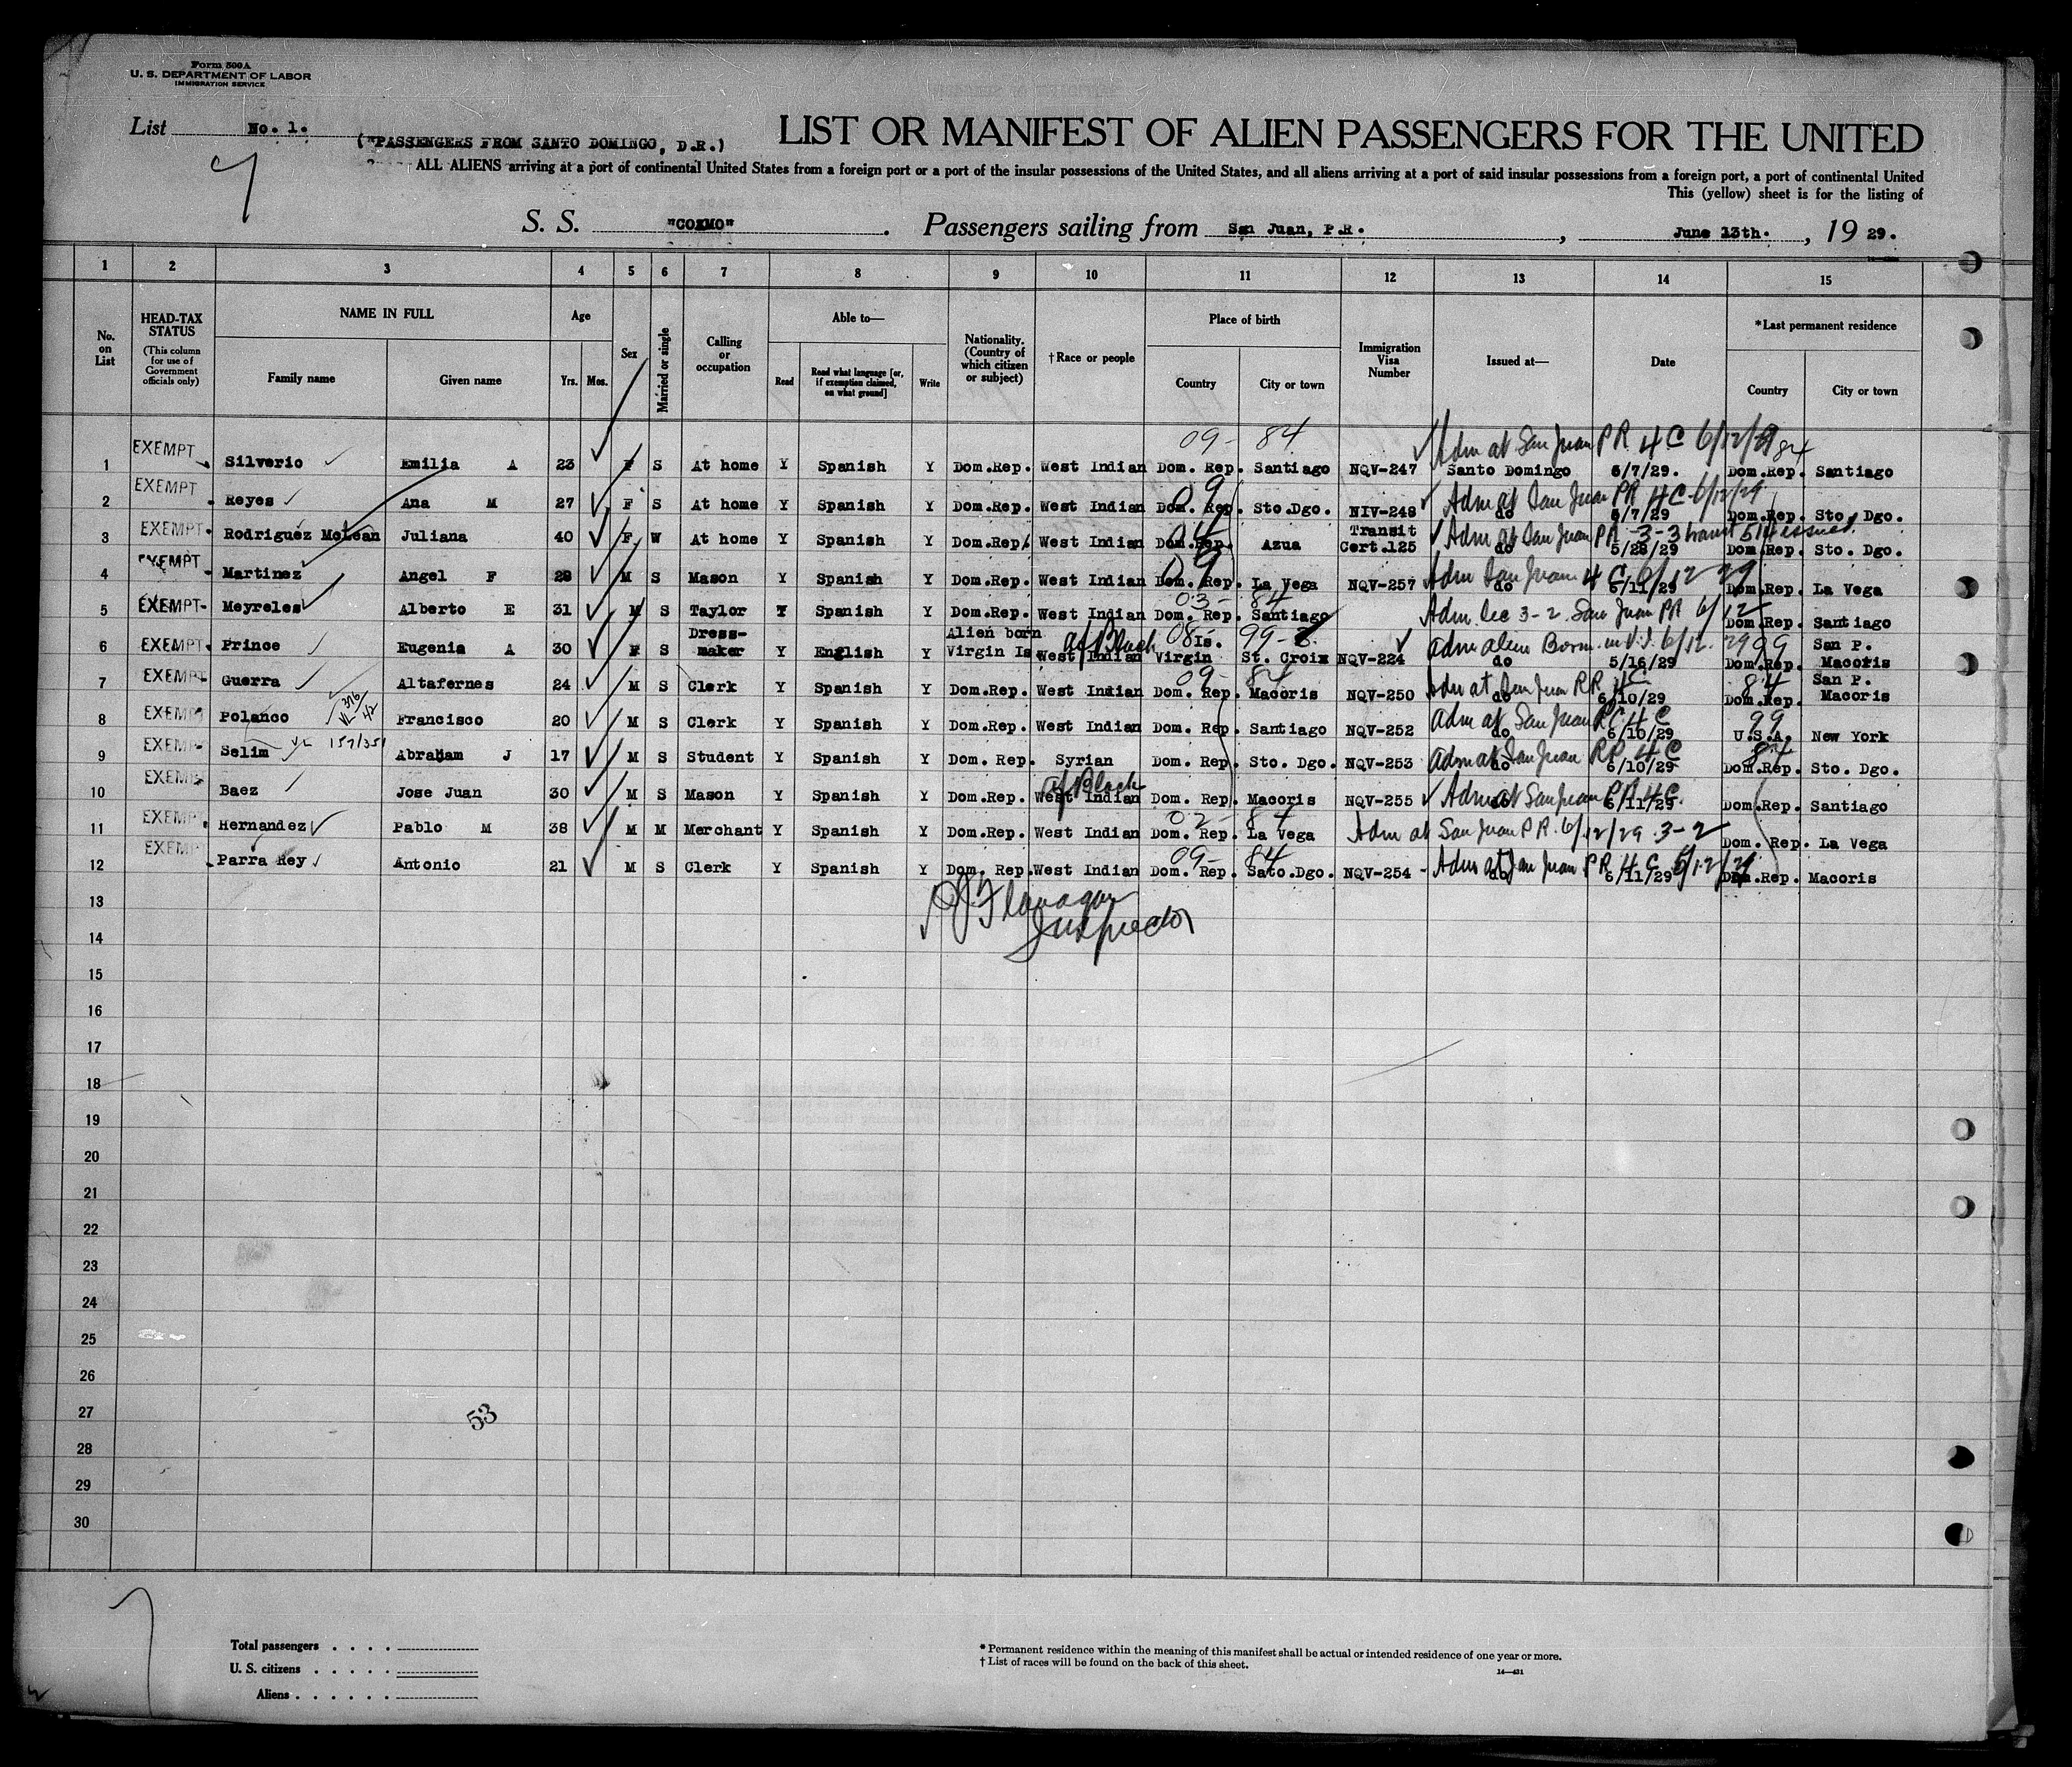 Form 500A
U. S. DEPARTMENT OF LABOR
IMMIGRATION SERVICE
List No. 1.
("PASSENGERS FROM SANTO DOMINGO, D.R.)
LIST OR MANIFEST OF ALIEN PASSENGERS FOR THE UNITED
7
ALL ALIENS arriving at a port of continental United States from a foreign port or a port of the insular possessions of the United States, and all aliens arriving at a port of said insular possessions from a foreign port, a port of continental United
This (yellow) sheet is for the listing of
S. S. "COAMO". Passengers sailing from San Juan, P.R., June 13th., 19 29.
1 2 3 4 5 6 7 8 9 10 11 12 13 14 15
No. on List
HEAD-TAX STATUS (This column for use of Government officials only)
NAME IN FULL Family name Given name
Age Yrs. Mos.
Sex
Married or single
Calling or occupation
Able to— Read Read what language [or, if exemption claimed, on what ground] Write
Nationality. (Country of which citizen or subject)
†Race or people
Place of birth Country City or town
Immigration Visa Number
Issued at—
Date
*Last permanent residence Country City or town
09- 84 Adm at San Juan PR 4C 6/12/29 84
1 EXEMPT Silverio Emilia A 23 F S At home Y Spanish Y Dom.Rep. West Indian Dom. Rep. Santiago NQV-247 Santo Domingo 6/7/29. Dom.Rep. Santiago
09 Adm at San Juan PR 4C 6/12/29
2 EXEMPT Reyes Ana M 27 F S At home Y Spanish Y Dom.Rep. West Indian Dom. Rep. Sto.Dgo. NIV-248 do 6/7/29 Dom.Rep. Sto. Dgo.
04 Adm at San Juan PR 3-3 transit 514 issued
3 EXEMPT Rodriguez McLean Juliana 40 F W At home Y Spanish Y Dom.Rep. West Indian Dom.Rep. Azua Transit Cert.125 do 5/28/29 Dom.Rep. Sto. Dgo.
09 Adm San Juan 4C 6/12 29
4 EXEMPT Martinez Angel F 28 M S Mason Y Spanish Y Dom.Rep. West Indian Dom. Rep. La Vega NQV-257 do 6/11/29 Dom.Rep. La Vega
03- 84 Adm Sec 3-2 San Juan PR 6/12
5 EXEMPT Meyreles Alberto E 31 M S Taylor Y Spanish Y Dom.Rep. West Indian Dom. Rep. Santiago Dom.Rep. Santiago
Af Black 08 99-2 adm alien Born in V.I. 6/12 29 99
6 EXEMPT Prince Eugenia A 30 F S Dress-maker Y English Y Alien born Virgin Is West Indian Virgin Is. St. Croix NQV-224 do 5/16/29 Dom.Rep. San P. Macoris
09- 84 Adm at San Juan PR 4C 84
7 EXEMPT Guerra Altafernes 24 M S Clerk Y Spanish Y Dom.Rep. West Indian Dom. Rep. Macoris NQV-250 do 6/10/29 Dom.Rep. San P. Macoris
VL 376/42 adm at San Juan 4C 99
8 EXEMPT Polanco Francisco 20 M S Clerk Y Spanish Y Dom.Rep. West Indian Dom. Rep. Santiago NQV-252 do 6/10/29 U.S.A. New York
VL 157/351 adm at San Juan PR 4C 84
9 EXEMPT Selim Abraham J 17 M S Student Y Spanish Y Dom. Rep. Syrian Dom. Rep. Sto. Dgo. NQV-253 do 6/10/29 Dom.Rep. Sto. Dgo.
Af Black Adm at San Juan PR 4C
10 EXEMPT Baez Jose Juan 30 M S Mason Y Spanish Y Dom.Rep. West Indian Dom. Rep. Macoris NQV-255 do 6/11/29 Dom.Rep. Santiago
02- 84 Adm at San Juan PR 6/12/29 3-2
11 EXEMPT Hernandez Pablo M 38 M M Merchant Y Spanish Y Dom.Rep. West Indian Dom. Rep. La Vega Dom. Rep. La Vega
09- 84 Adm at San Juan PR 4C 6/12/29
12 EXEMPT Parra Rey Antonio 21 M S Clerk Y Spanish Y Dom. Rep. West Indian Dom. Rep. Sato.Dgo. NQV-254 do 6/11/29 Dom.Rep. Macoris
13 Flanagan
14 Inspector
15
16
17
18
19
20
21
22
23
24
25
26
27
53
28
29
30
Total passengers
U. S. citizens
Aliens
* Permanent residence within the meaning of this manifest shall be actual or intended residence of one year or more.
† List of races will be found on the back of this sheet.
14—431